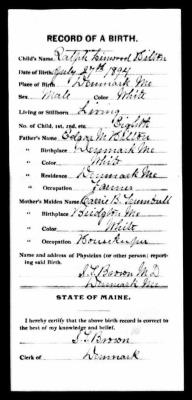 RECORD OF A BIRTH.
Child's Name, Ralph Linwood Belton
Date of Birth, July 27th 1894
Place of Birth, Denmark Me
Sex Male Color White
Living or Stillborn, Living
No. of Child, 1st, 2nd, etc. Eighth
Father's Name, Edgar M Belton
" Birthplace Denmark Me
" Color White
" Residence Denmark Me
" Occupation Farmer
Mother's Maiden Name, Carrie B. Trumbull
" Birthplace, Bridgton Me
" Color White
" Occupation Housekeeper
Name and address of Physician (or other person) reporting said Birth.
S. T. Brown M.D
Denmark Me
STATE OF MAINE.
I hereby certify that the above birth record is correct to
the best of my knowledge and belief.
S. T. Brown
Clerk of Denmark